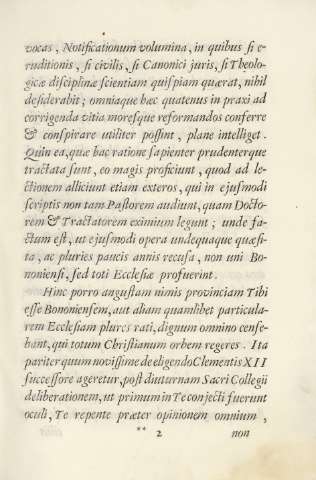 vocas, Notificationum volumina, in quibus ſi e-
ruditionis, ſi civilis, ſi Canonici juris, ſi Theolo-
gicæ diſciplinæ ſcientiam quiſpiam quærat, nihil
deſiderabit; omniaque hæc quatenus in praxi ad
corrigenda vitia moreſque reformandos conferre
& conſpirare utiliter poſſint, plane intelliget.
Quin ea, quæ hac ratione ſapienter prudenterque
tractata ſunt, eo magis proficiunt, quod ad le-
ctionem alliciunt etiam exteros, qui in ejuſmodi
ſcriptis non tam Paſtorem audiunt, quam Docto-
rem & Tractatorem eximium legunt; unde fa-
ctum eſt, ut ejuſmodi opera undequaque quæſi-
ta, ac pluries paucis annis recuſa, non uni Bo-
nonienſi, ſed toti Eccleſiæ profuerint.
Hinc porro anguſtam nimis provinciam Tibi
eſſe Bononienſem, aut aliam quamlibet particula-
rem Eccleſiam plures rati, dignum omnino cenſe-
bant, qui totum Chriſtianum orbem regeres. Ita
pariter quum noviſſime de eligendo Clementis XII
ſucceſſore ageretur, poſt diuturnam Sacri Collegii
deliberationem, ut primum in Te conjecti fuerunt
oculi, Te repente præter opinionem omnium,
** 2 non